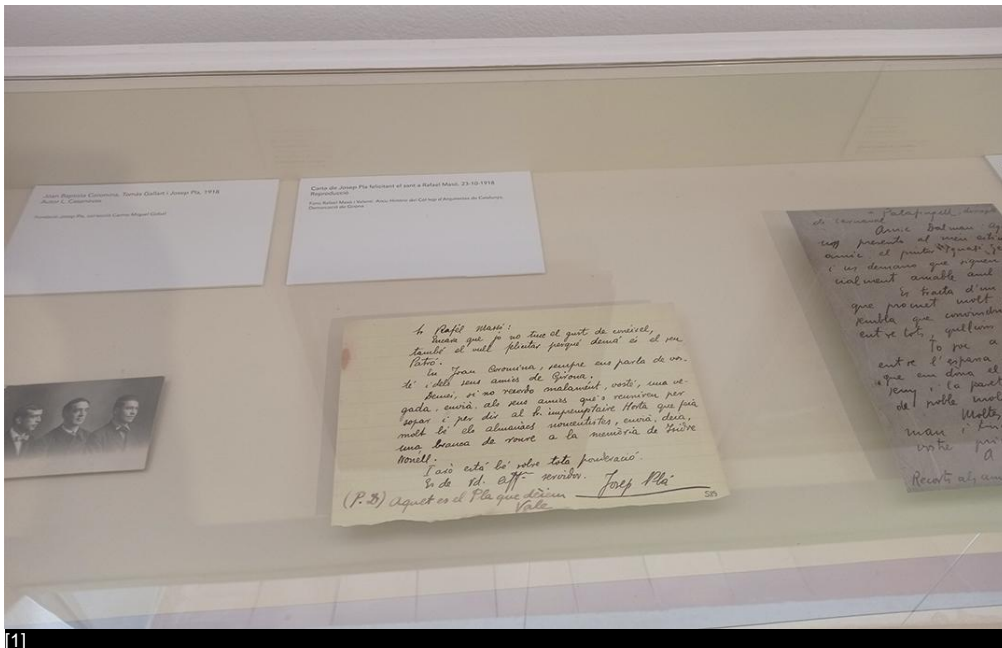 Joan Baptista Coromina, Tomàs Gallart i Josep Pla, 1918
Autor L. Casanovas
Fundació Josep Pla, col·lecció
Carta de Josep Pla felicitant el sant a Rafael Masó, 23-10-1918
Reproducció
Fons Rafael Masó i Valentí. Arxiu Històric del Col·legi d'Arquitectes de Catalunya,
Demarcació de Girona
Sr Rafèl Massó:
Encara que jo no tinc el gust de coneixel,
també el vull felicitar perquè demà és el seu
Patró.
En Joan Coromina, sempre ens parla de vos-
té i dels seus amics de Girona.
Demés, si no recordo malament, vostè, una ve-
gada, envià, als seus amics que's reuniren per
sopar i per dir al Sr. impremptaire Horta que feia
molt bé els almanacs noucentistes, envià, deia,
una branca de roure a la memòria de Isidre
Nonell.
I això està bé sobre tota ponderació.
Es de Vd. affm servidor. Josep Plá
(P.D) Aquet es el Pla que dèiem
Vale
Palafrugell
de Carnaval
Amic Dalmau
presento al meu
amic, el pintor
i us demano que siguen
cialment amable amb
Es tracta d'un
que promet molt
sembla que convindria
entre tots,
Jo poc a
entre l'espana
que em dona el
seny i la
de poble
Moltes
man i
vostre
A
Records als
[1]